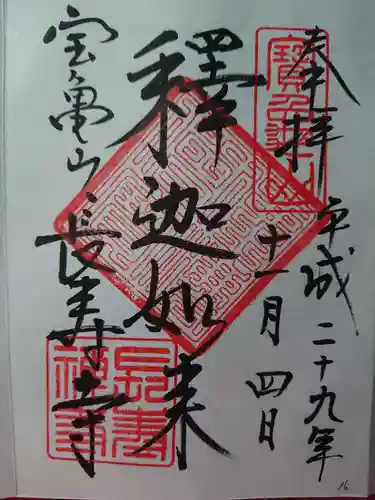 奉拝
平成二十九年
十一月四日
釋迦如来
宝亀山長寿寺
16